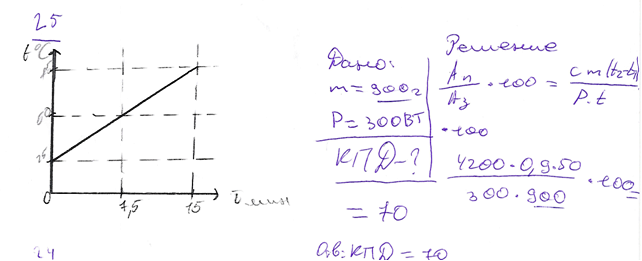 25
t°C
0
7,5
15
τ, мин
Дано:
m = 900 г
P = 300 ВТ
КПД - ?
Решение
Aп/Aз · 100 = cm(t₂-t₁)/P·t · 100
4200 · 0,9 · 50/300 · 900 · 100
= 70
Отв: КПД = 70